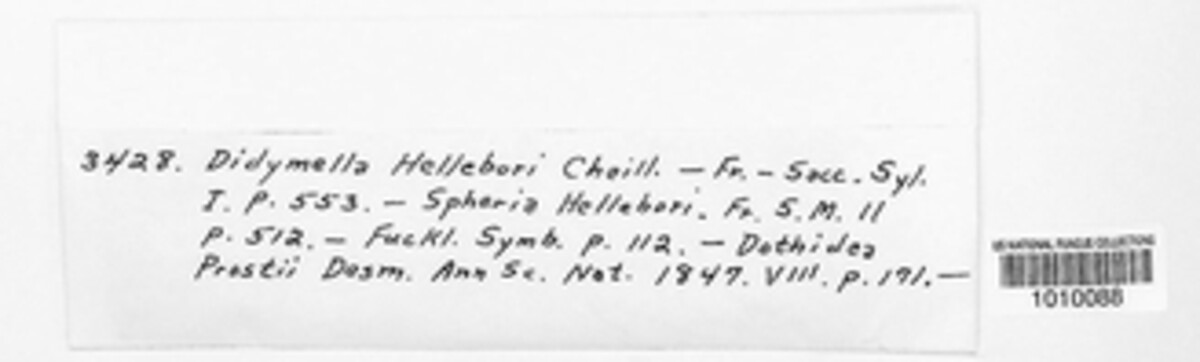 3428. Didymella Hellebori Chaill. — Fr. — Sacc. Syl.
I. p. 553. — Spheria Hellebori. Fr. S. M. II
p. 512. — Fuckl. Symb. p. 112. — Dothidea
Prostii Desm. Ann Sc. Nat. 1847. VIII. p. 171. —
US NATIONAL FUNGUS COLLECTIONS
1010088